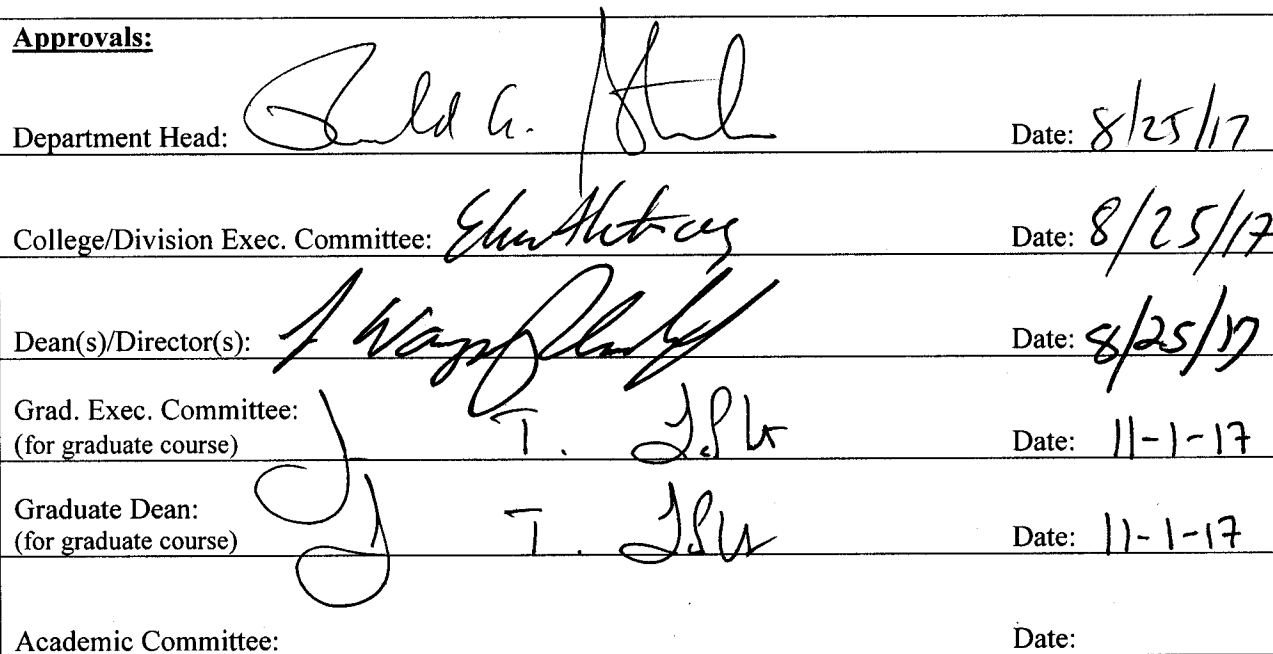 Approvals:
Department Head: G. Date: 8/25/17
College/Division Exec. Committee: Date: 8/25/17
Dean(s)/Director(s): Date: 8/25/17
Grad. Exec. Committee:
(for graduate course) J T. Date: 11-1-17
Graduate Dean:
(for graduate course) J T. Date: 11-1-17
Academic Committee: Date: